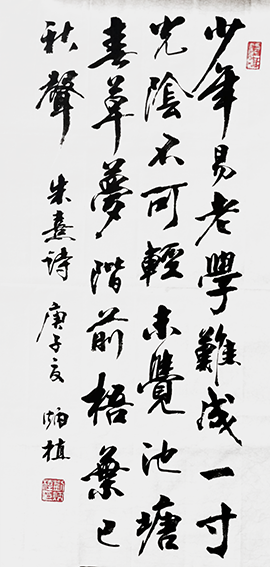 少年易老學難成一寸
光陰不可輕未覺池塘
春草夢階前梧葉已
秋聲 朱熹詩 庚子夏 炳植